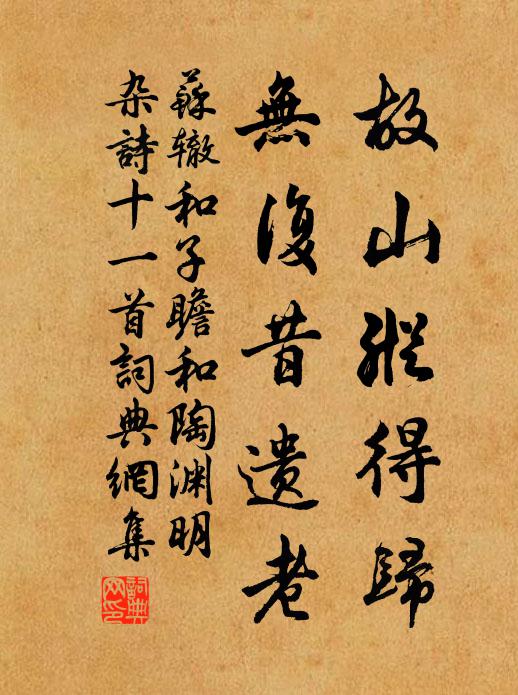 故山縱得歸
無復昔遺老
蘇辙和子瞻和陶渊明
杂詩十一首詞典網集
詞典
网印